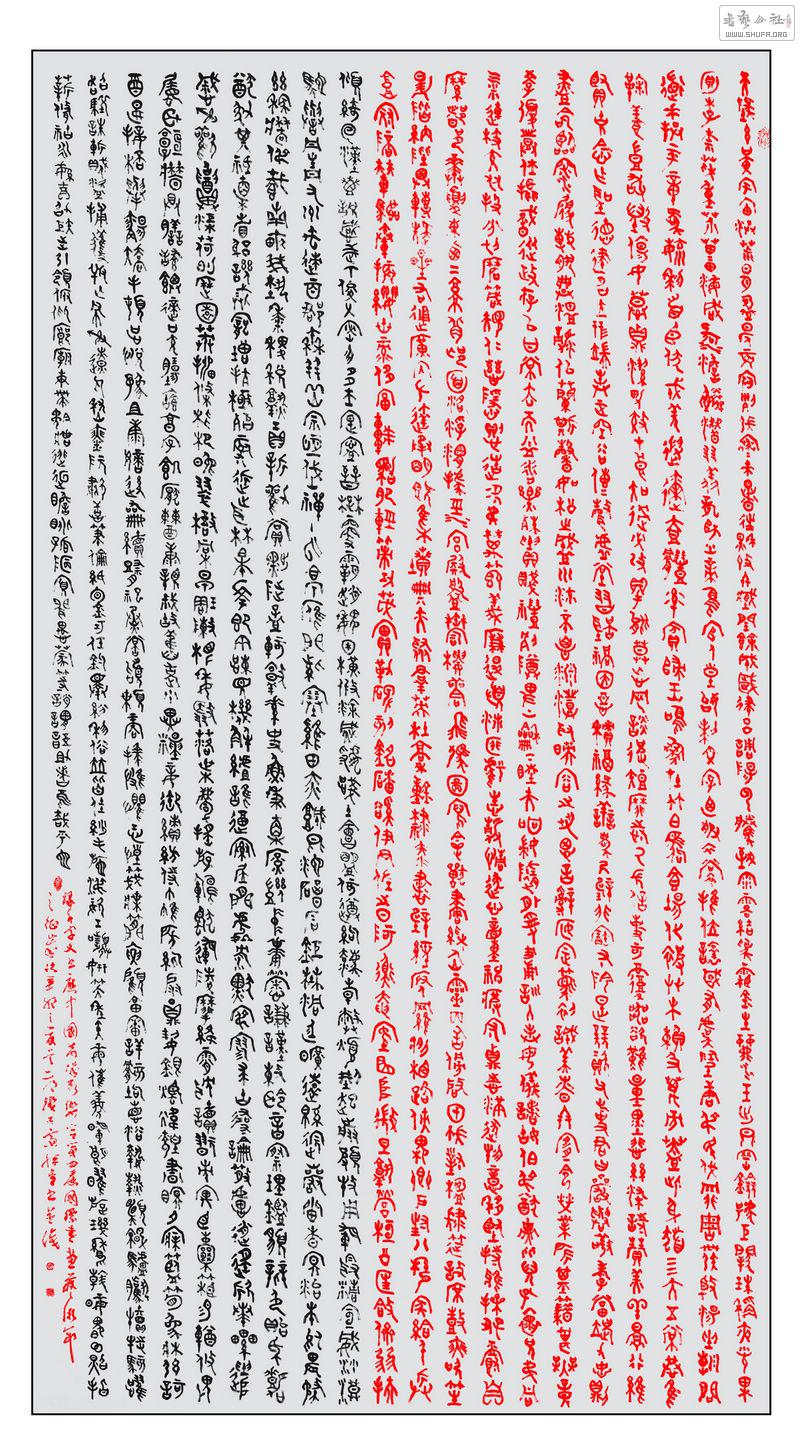 書藝公社
WWW.SHUFA.ORG
天地玄黃宇宙洪荒日月盈昃辰宿列張寒來暑往秋收冬藏閏餘成歲律呂調陽雲騰致雨露結為霜金生麗水玉出崑岡劍號巨闕珠稱夜光果
珍李柰菜重芥薑海鹹河淡鱗潛羽翔龍師火帝鳥官人皇始制文字乃服衣裳推位讓國有虞陶唐弔民伐罪周發殷湯坐朝問
道垂拱平章愛育黎首臣伏戎羌遐邇壹體率賓歸王鳴鳳在竹白駒食場化被草木賴及萬方蓋此身髮四大五常恭惟
鞠養豈敢毀傷女慕貞潔男效才良知過必改得能莫忘罔談彼短靡恃己長信使可覆器欲難量墨悲絲染詩讚羔羊景行維
賢剋念作聖德建名立形端表正空谷傳聲虛堂習聽禍因惡積福緣善慶尺璧非寶寸陰是競資父事君曰嚴與敬孝當竭力忠則
盡命臨深履薄夙興溫凊似蘭斯馨如松之盛川流不息淵澄取映容止若思言辭安定篤初誠美慎終宜令榮業所基籍甚無竟
學優登仕攝職從政存以甘棠去而益詠樂殊貴賤禮別尊卑上和下睦夫唱婦隨外受傅訓入奉母儀諸姑伯叔猶子比兒孔懷兄弟同
氣連枝交友投分切磨箴規仁慈隱惻造次弗離節義廉退顛沛匪虧性靜情逸心動神疲守真志滿逐物意移堅持雅操好爵自
縻都邑華夏東西二京背邙面洛浮渭據涇宮殿盤鬱樓觀飛驚圖寫禽獸畫彩仙靈丙舍傍啟甲帳對楹肆筵設席鼓瑟吹笙
陞階納陛弁轉疑星右通廣內左達承明既集墳典亦聚群英杜稿鍾隸漆書壁經府羅將相路俠槐卿戶封八縣家給千兵
高冠陪輦驅轂振纓世祿侈富車駕肥輕策功茂實勒碑刻銘磻溪伊尹佐時阿衡奄宅曲阜微旦孰營桓公匡合濟弱扶
傾綺迴漢惠說感武丁俊乂密勿多士寔寧晉楚更霸趙魏困橫假途滅虢踐土會盟何遵約法韓弊煩刑起翦頗牧用軍最精宣威沙漠
馳譽丹青九州禹跡百郡秦并嶽宗恆岱禪主云亭雁門紫塞雞田赤城昆池碣石鉅野洞庭曠遠綿邈巖岫杳冥治本於農務
茲稼穡俶載南畝我藝黍稷稅熟貢新勸賞黜陟孟軻敦素史魚秉直庶幾中庸勞謙謹敕聆音察理鑑貌辨色貽厥
猷勉其祗植省躬譏誡寵增抗極殆辱近恥林皋幸即兩疏見機解組誰逼索居閑處沉默寂寥求古尋論散慮逍遙欣奏累遣
慼謝歡招渠荷的歷園莽抽條枇杷晚翠梧桐早凋陳根委翳落葉飄颻遊鵾獨運凌摩絳霄耽讀翫市寓目囊箱易輶攸畏
屬耳垣牆具膳餐飯適口充腸飽飫烹宰飢厭糟糠親戚故舊老少異糧妾御績紡侍巾帷房紈扇圓潔銀燭煒煌晝眠夕寐藍筍象床弦歌
酒讌接杯舉觴矯手頓足悅豫且康嫡後嗣續祭祀蒸嘗稽顙再拜悚懼恐惶牋牒簡要顧答審詳骸垢想浴執熱願涼驢騾犢特駭躍
超驤誅斬賊盜捕獲叛亡布射遼丸嵇琴阮嘯恬筆倫紙鈞巧任釣釋紛利俗並皆佳妙毛施淑姿工顰妍笑年矢每催曦暉朗曜璇璣懸斡晦魄環照指
薪修祜永綏吉劭矩步引領俯仰廊廟束帶矜莊徘徊瞻眺孤陋寡聞愚蒙等誚謂語助者焉哉乎也